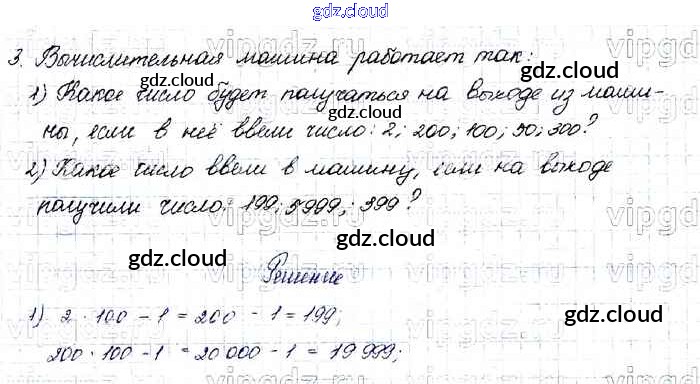 gdz.cloud
3. Вычислительная машина работает так:
1) Какое число будет получаться на выходе из маши-
ны, если в неё ввели число: 2; 200; 100; 50; 300?
2) Какое число ввели в машину, если на выходе
получили число: 199; 5999; 399?
Решение
1) 2 · 100 - 1 = 200 - 1 = 199;
200 · 100 - 1 = 20 000 - 1 = 19 999;